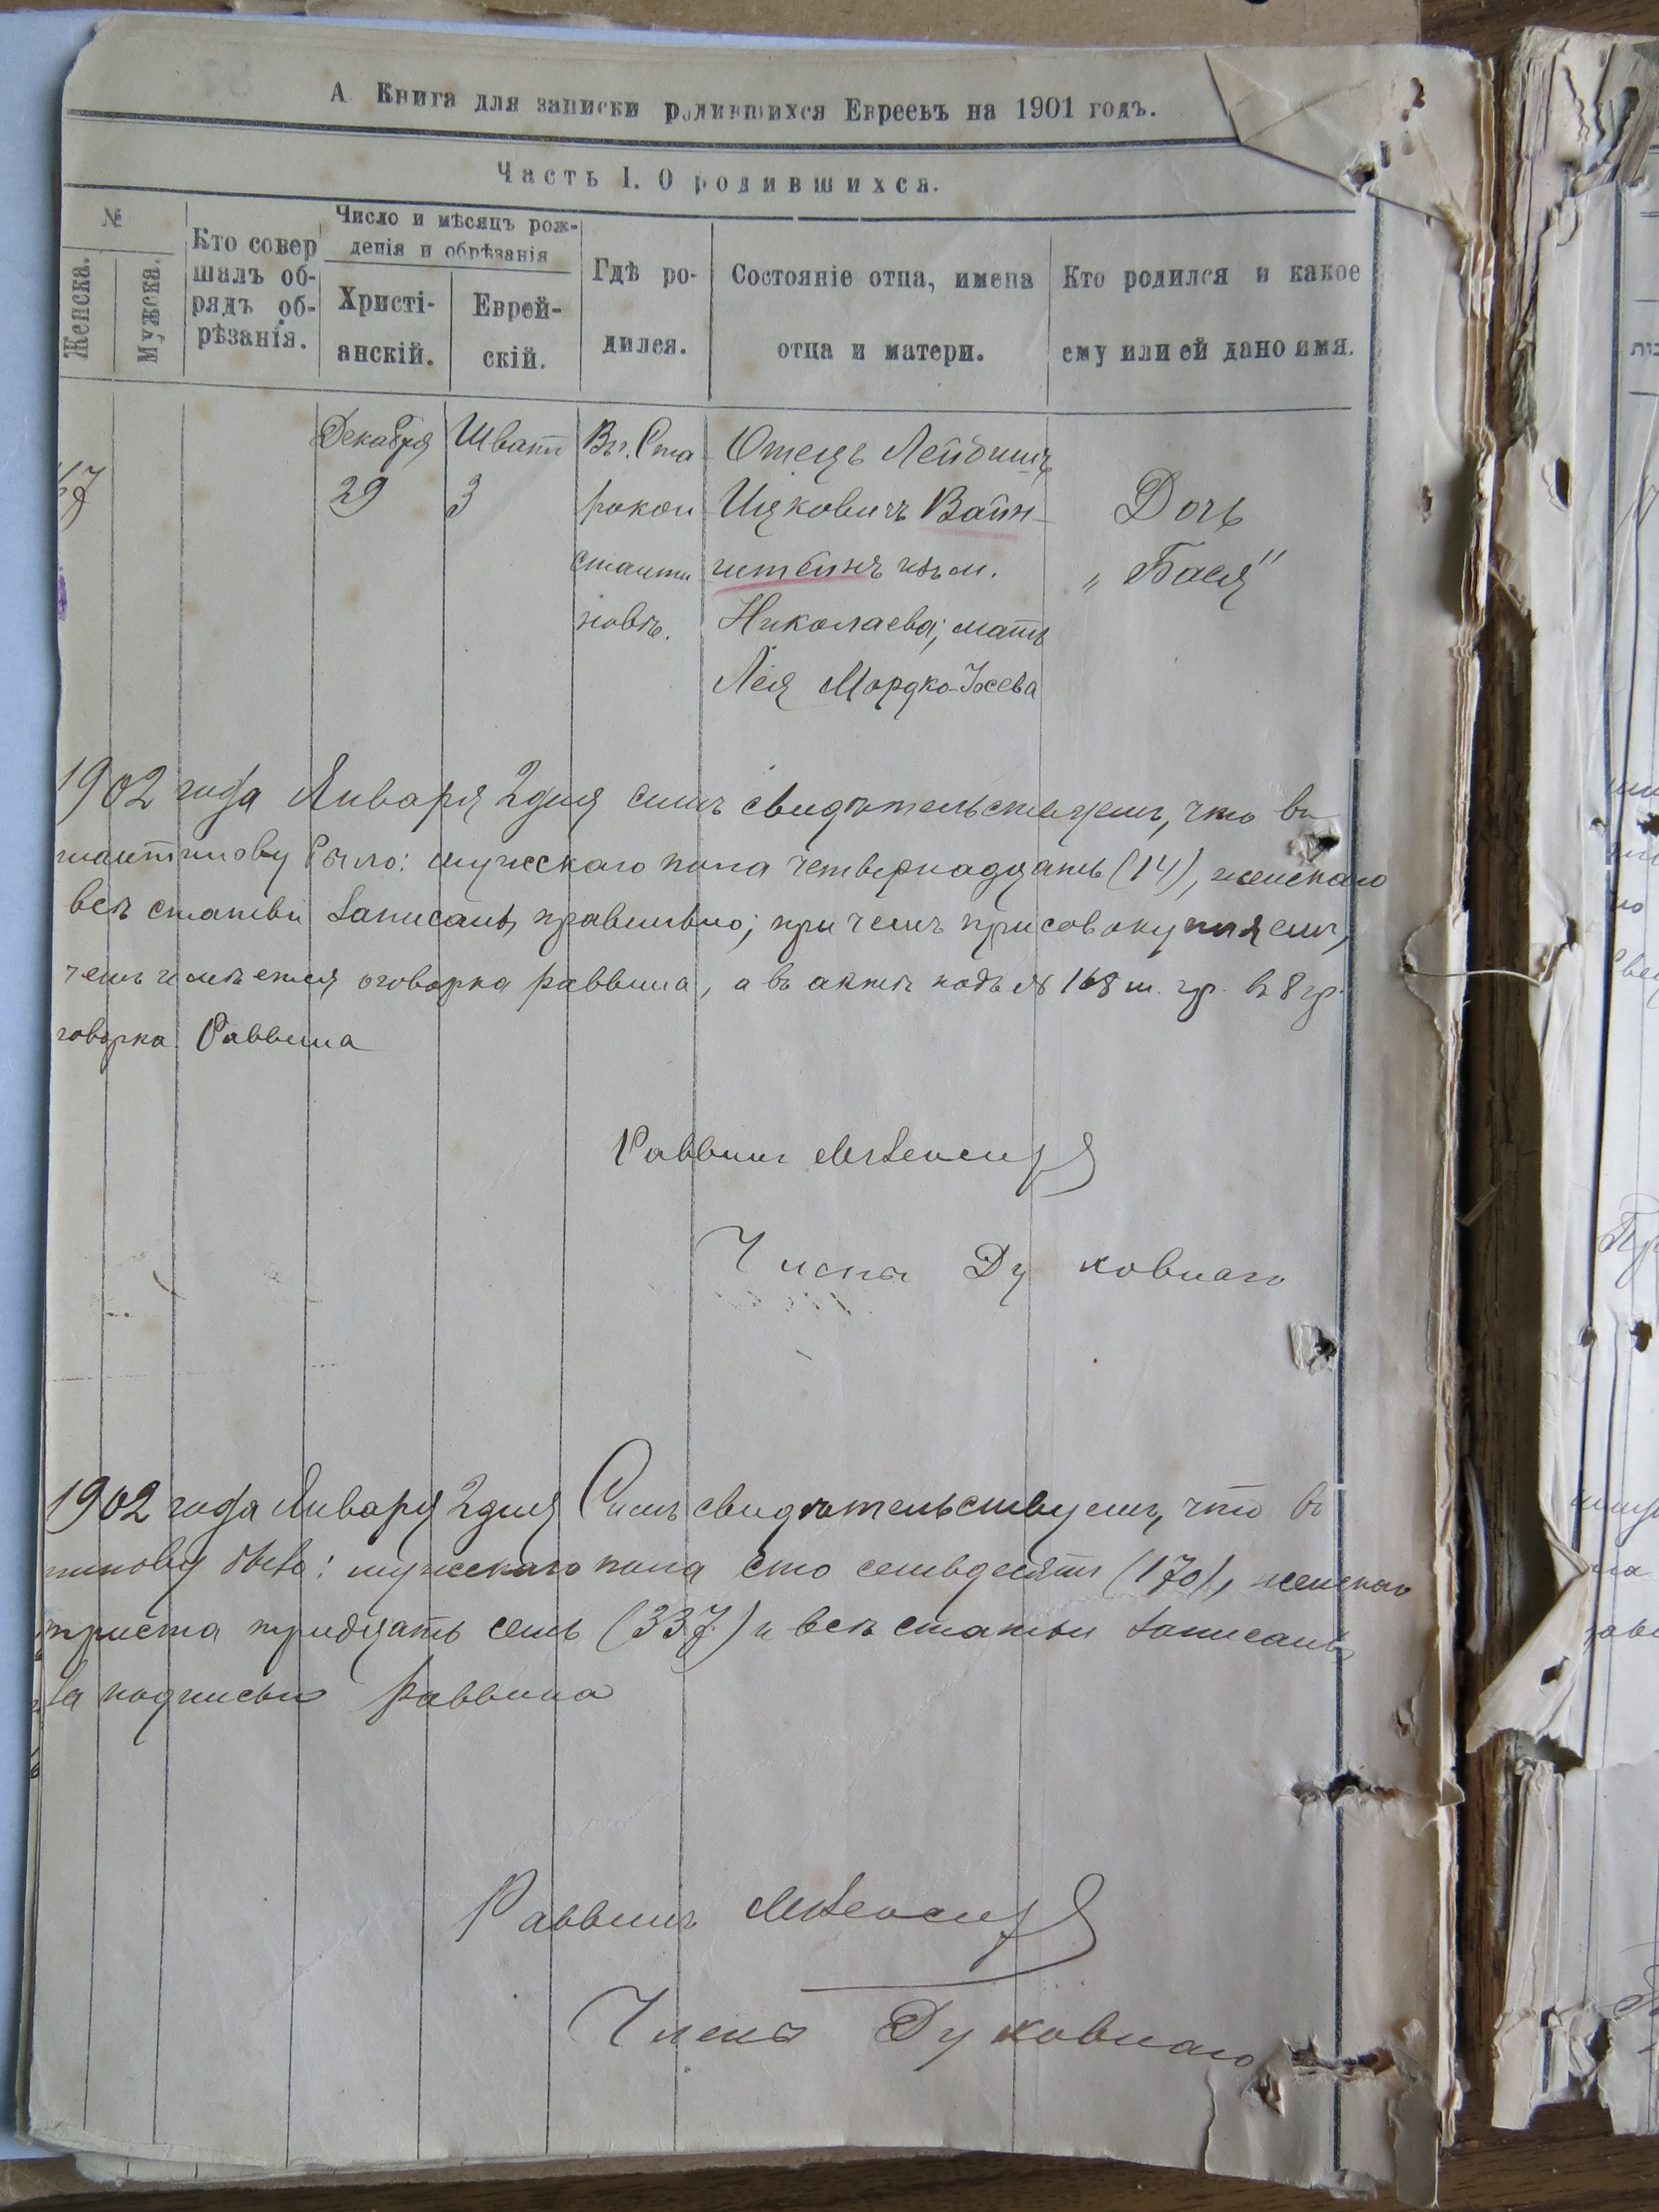 А. Книга для записки родившихся Евреевъ на 1901 годъ.
Часть I. О родившихся.
№
Женска.
Мужска.
Кто совер
шалъ об-
рядъ об-
рѣзанія.
Число и мѣсяцъ рож-
денія и обрѣзанія
Христі-
анскій.
Еврей-
скій.
Гдѣ ро-
дился.
Состояніе отца, имена
отца и матери.
Кто родился и какое
ему или ей дано имя.
Декабря
29
Шватъ
3
Въ г. Ста
рокон
станти
новѣ.
Отецъ Лейбишъ
Ицковичъ Вайн-
штейнъ изъ м.
Николаева; мать
Лея Мордко-Іосева
Дочь
„Бася"
1902 года Января 2 дня симъ свидѣтельствуемъ, что въ
тантинову было: мужскаго пола четырнадцать (14), женскаго
всѣ статьи записаны правильно; при чемъ присовокупляемъ,
чемъ имѣется оговорка раввина, а въ актѣ подъ № 168 м. гр. въ 8 гр.
говорка Раввина
Раввинъ
Члены Духовнаго
1902 года Января 2 дня Симъ свидѣтельствуемъ, что въ
тинову было: мужскаго пола сто семьдесятъ (170), женскаго
триста тридцать семь (337) и всѣ статьи записаны
за подписью раввина
Раввинъ
Члены Духовнаго